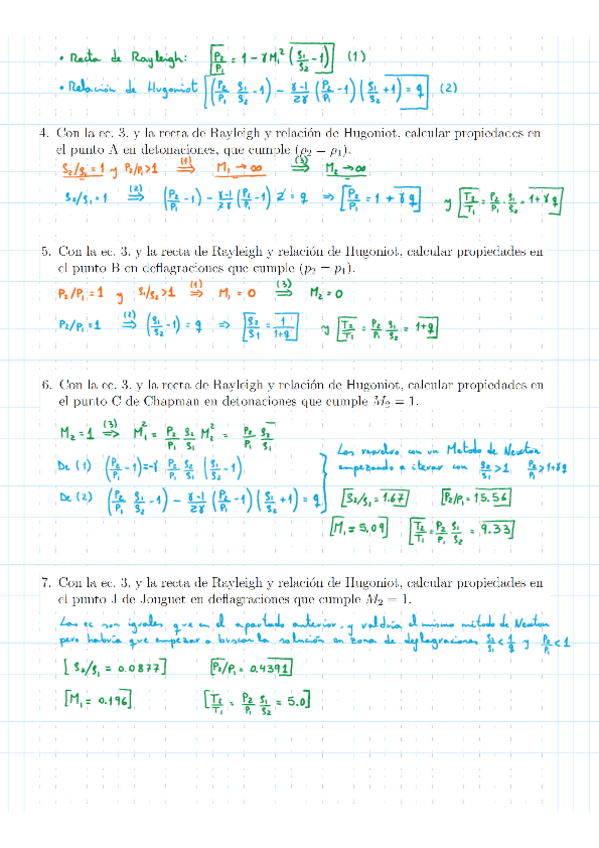 • Recta de Rayleigh: [P₂/P₁ = 1 - γM₁² (ρ₁/ρ₂ - 1)] (1)
• Relación de Hugoniot [(P₂/P₁ ρ₁/ρ₂ - 1) - (γ-1)/2γ (P₂/P₁ - 1)(ρ₁/ρ₂ + 1) = q] (2)
4. Con la ec. 3. y la recta de Rayleigh y relación de Hugoniot, calcular propiedades en
el punto A en detonaciones, que cumple (ρ₂ = ρ₁).
ρ₂/ρ₁ = 1 y P₂/P₁ > 1 ⇒(1) M₁ → ∞ ⇒(3) M₂ → ∞
ρ₂/ρ₁ = 1 ⇒(2) (P₂/P₁ - 1) - (γ-1)/2γ (P₂/P₁ - 1) 2 = q ⇒ [P₂/P₁ = 1 + γq] y [T₂/T₁ = P₂/P₁ · ρ₁/ρ₂ = 1 + γq]
5. Con la ec. 3. y la recta de Rayleigh y relación de Hugoniot, calcular propiedades en
el punto B en deflagraciones que cumple (p₂ = p₁).
P₂/P₁ = 1 y ρ₁/ρ₂ > 1 ⇒(1) M₁ = 0 ⇒(3) M₂ = 0
P₂/P₁ = 1 ⇒(2) (ρ₁/ρ₂ - 1) = q ⇒ [ρ₂/ρ₁ = 1/(1+q)] y [T₂/T₁ = P₂/P₁ ρ₁/ρ₂ = 1+q]
6. Con la ec. 3. y la recta de Rayleigh y relación de Hugoniot, calcular propiedades en
el punto C de Chapman en detonaciones que cumple M₂ = 1.
M₂ = 1 ⇒(3) M₁² = P₂/P₁ ρ₂/ρ₁ M₂² = P₂/P₁ ρ₂/ρ₁
Las resuelvo con un Metodo de Newton
De (1) (P₂/P₁ - 1) = -γ P₂/P₁ ρ₂/ρ₁ (ρ₁/ρ₂ - 1)
empezando a iterar con ρ₂/ρ₁ > 1 P₂/P₁ > 1+γq
De (2) (P₂/P₁ ρ₁/ρ₂ - 1) - (γ-1)/2γ (P₂/P₁ - 1)(ρ₁/ρ₂ + 1) = q
[ρ₂/ρ₁ = 1.67] [P₂/P₁ = 15.56]
[M₁ = 5.09] [T₂/T₁ = P₂/P₁ ρ₁/ρ₂ = 9.33]
7. Con la ec. 3. y la recta de Rayleigh y relación de Hugoniot, calcular propiedades en
el punto J de Jouguet en deflagraciones que cumple M₂ = 1.
Las ec son iguales que en el apartado anterior, y valdría el mismo método de Newton
pero habría que empezar a buscar la solución en zona de deflagraciones ρ₂/ρ₁ < 1/q y P₂/P₁ < 1
[ρ₂/ρ₁ = 0.0877] [P₂/P₁ = 0.4391]
[M₁ = 0.196] [T₂/T₁ = P₂/P₁ ρ₁/ρ₂ = 5.0]